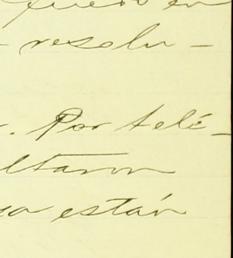 en
- resolu-
. Por telé-
ltaron
están